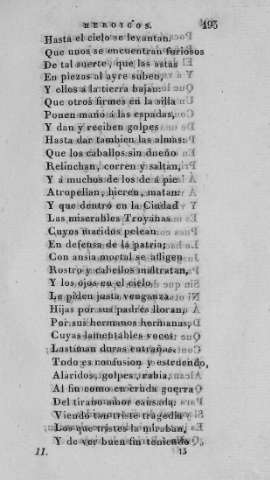 HEROICOS. 193
Hasta el cielo se levantan.
Que unos se encuentran furiosos
De tal suerte, que las astas
En piezas al ayre suben,
Y ellos á la tierra bajan.
Que otros firmes en la silla
Ponen mano á las espadas,
Y dan y reciben golpes
Hasta dar tambien las almas:
Que los caballos sin dueño
Relinchan, corren y saltan,
Y á muchos de los de á pie
Atropellan, hieren, matan:
Y que dentro en la Ciudad
Las miserables Troyanas
Cuyos maridos pelean
En defensa de la patria;
Con ansia mortal se afligen
Rostro y cabellos maltratan,
Y los ojos en el cielo
Le piden justa venganza.
Hijas por sus padres lloran,
Por sus hermanos hermanas,
Cuyas lamentables voces
Lastiman duras entrañas.
Todo es confusion y estruendo,
Alaridos, golpes, rabia,
Al fin como en cruda guerra
Del tirano amor causada;
Viendo tan triste tragedia
Los que tristes la miraban,
Y de ver buen fin teniendo
II. 13